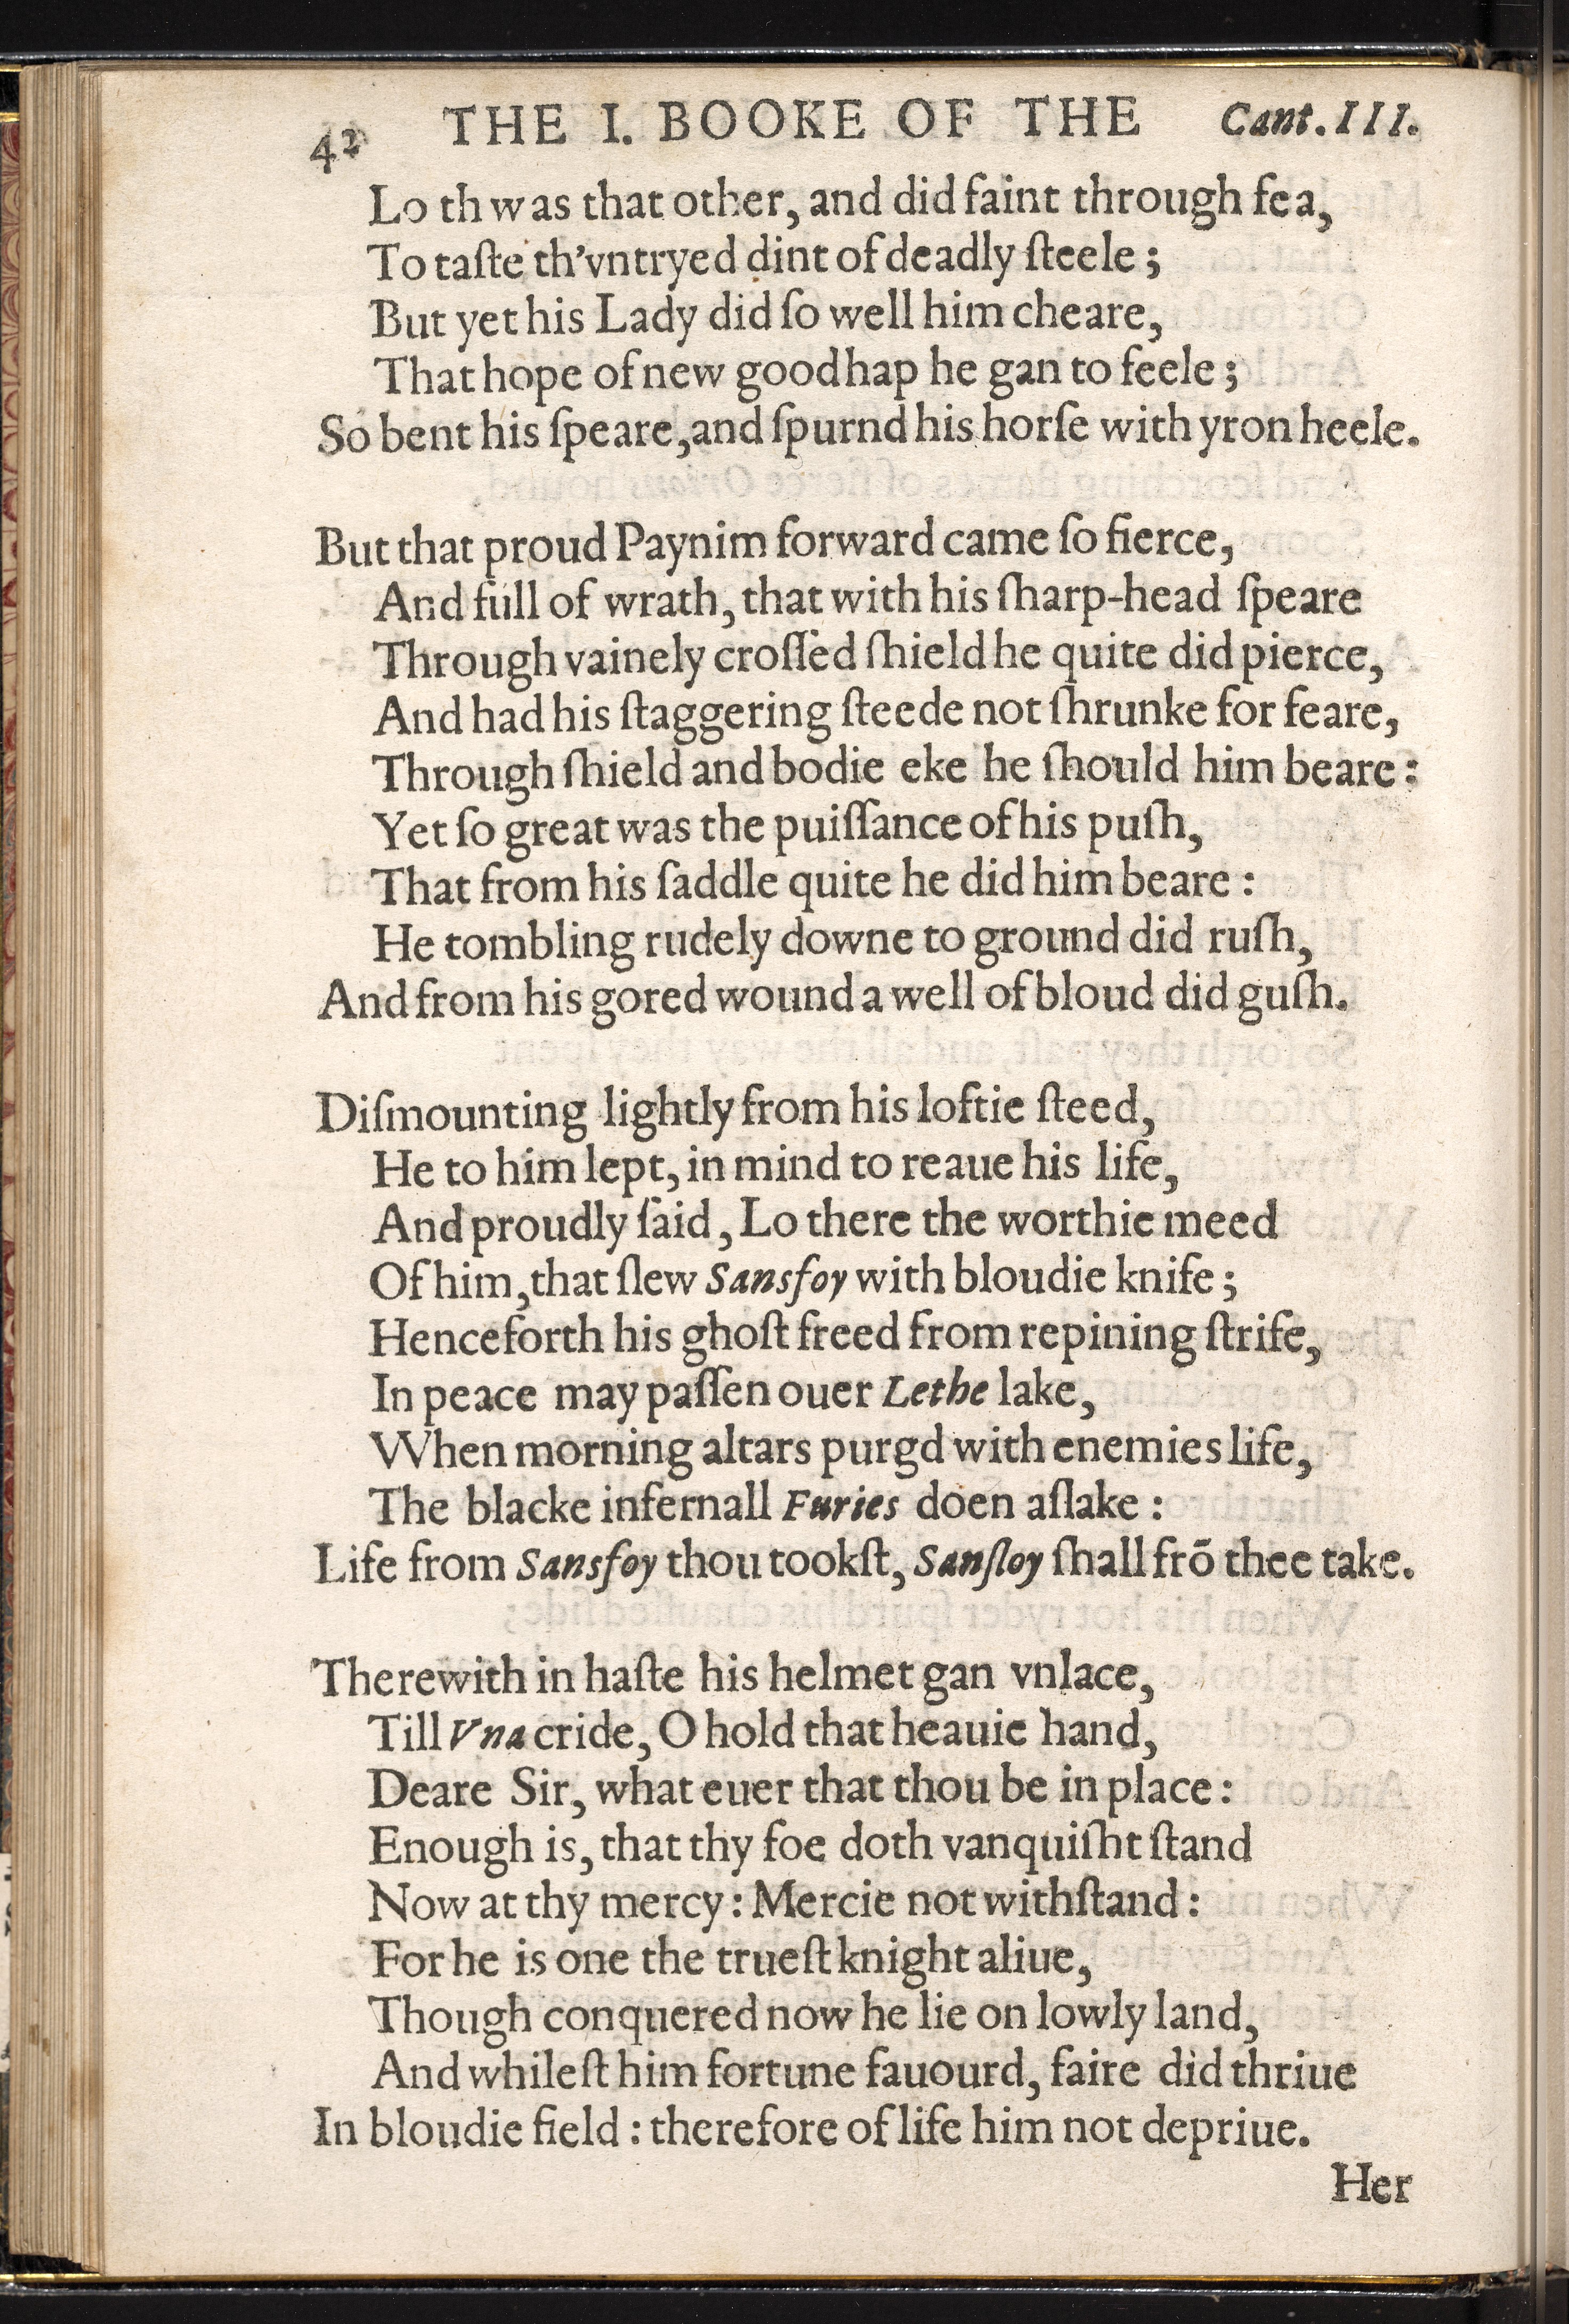 42 THE I. BOOKE OF THE Cant. III.
Loth was that other, and did faint through fea,
To taſte th'vntryed dint of deadly ſteele;
But yet his Lady did ſo well him cheare,
That hope of new goodhap he gan to feele;
So bent his ſpeare, and ſpurnd his horſe with yron heele.
But that proud Paynim forward came ſo fierce,
And full of wrath, that with his ſharp-head ſpeare
Through vainely croſſed ſhield he quite did pierce,
And had his ſtaggering ſteede not ſhrunke for feare,
Through ſhield and bodie eke he ſhould him beare:
Yet ſo great was the puiſſance of his puſh,
That from his ſaddle quite he did him beare:
He tombling rudely downe to ground did ruſh,
And from his gored wound a well of bloud did guſh.
Diſmounting lightly from his loftie ſteed,
He to him lept, in mind to reaue his life,
And proudly ſaid, Lo there the worthie meed
Of him, that ſlew Sansfoy with bloudie knife;
Henceforth his ghoſt freed from repining ſtrife,
In peace may paſſen ouer Lethe lake,
When morning altars purgd with enemies life,
The blacke infernall Furies doen aſlake:
Life from Sansfoy thou tookſt, Sanſloy ſhall frō thee take.
Therewith in haſte his helmet gan vnlace,
Till Vna cride, O hold that heauie hand,
Deare Sir, what euer that thou be in place:
Enough is, that thy foe doth vanquiſht ſtand
Now at thy mercy: Mercie not withſtand:
For he is one the trueſt knight aliue,
Though conquered now he lie on lowly land,
And whileſt him fortune fauourd, faire did thriue
In bloudie field: therefore of life him not depriue.
Her